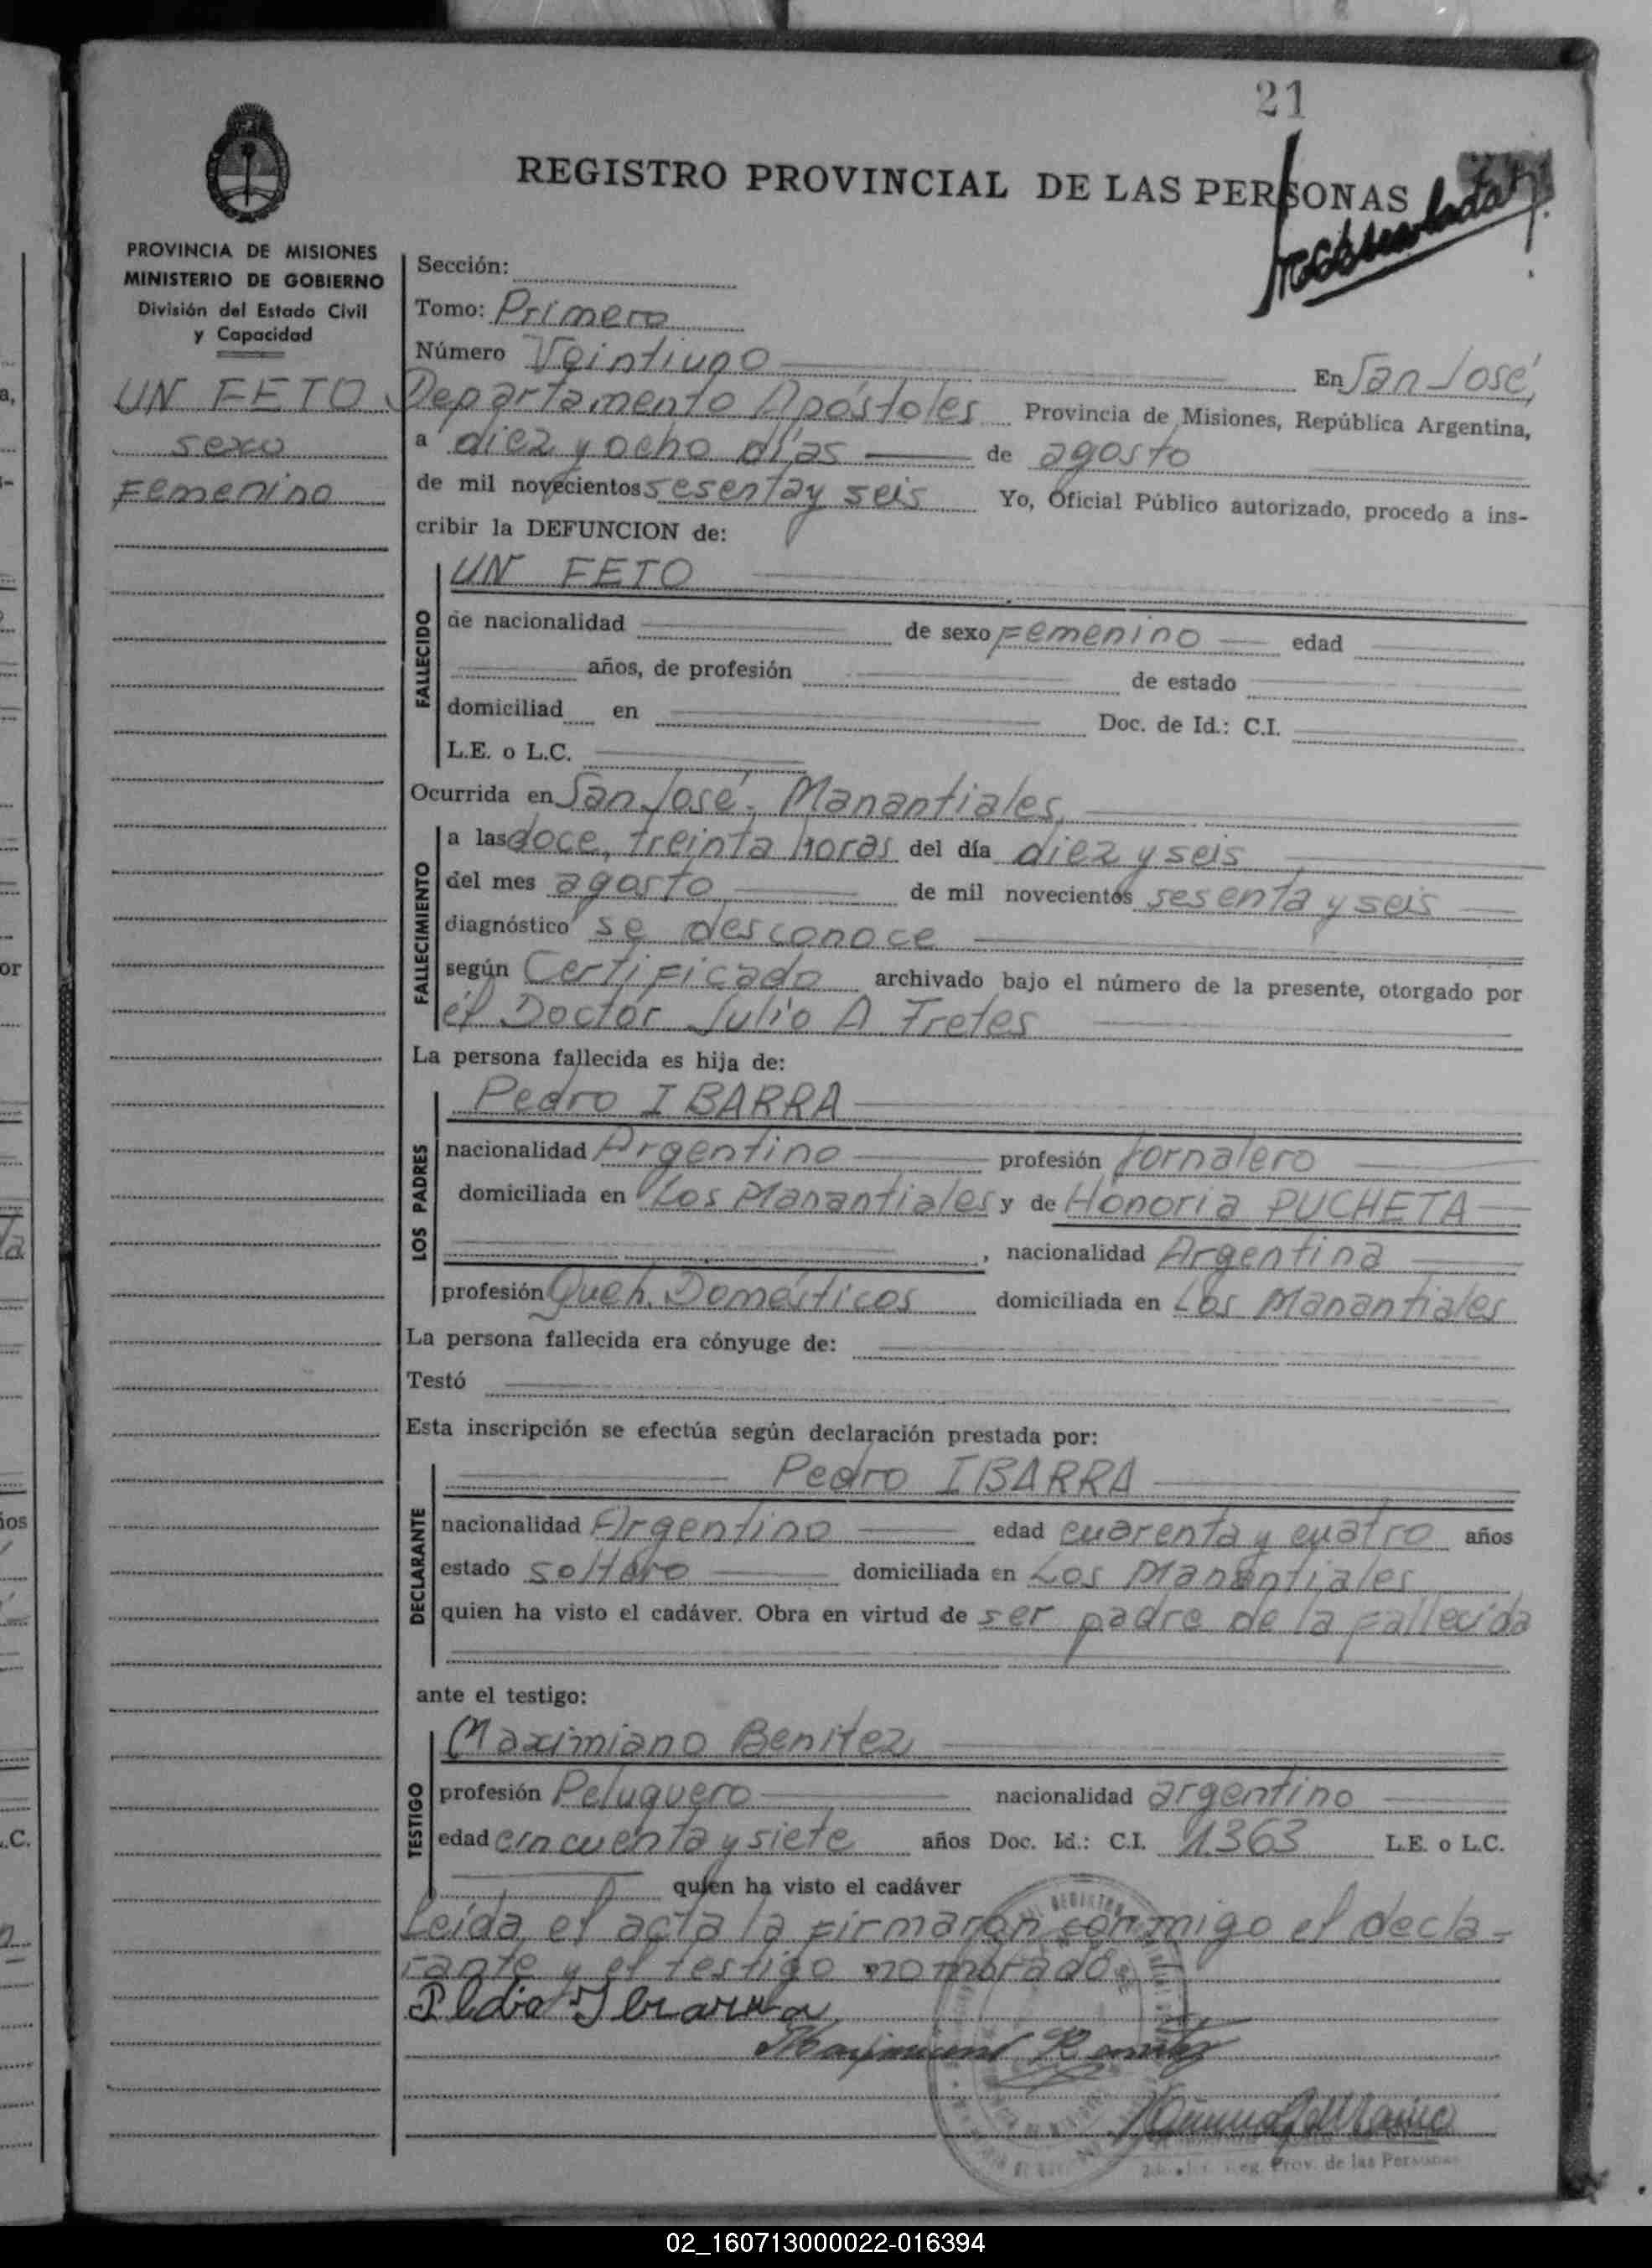 21
REGISTRO PROVINCIAL DE LAS PERSONAS
PROVINCIA DE MISIONES
MINISTERIO DE GOBIERNO
División del Estado Civil
y Capacidad
UN FETO
sexo
Femenino
Sección:
Tomo: Primero
Número Veintiuno En San José,
Departamento Apóstoles Provincia de Misiones, República Argentina,
a diez y ocho días de agosto
de mil novecientos sesenta y seis Yo, Oficial Público autorizado, procedo a ins-
cribir la DEFUNCION de:
UN FETO
FALLECIDO
de nacionalidad de sexo Femenino edad
años, de profesión de estado
domiciliad en Doc. de Id.: C.I.
L.E. o L.C.
Ocurrida en San José, Manantiales,
FALLECIMIENTO
a las doce, treinta horas del día diez y seis
del mes agosto de mil novecientos sesenta y seis
diagnóstico se desconoce
según Certificado archivado bajo el número de la presente, otorgado por
el Doctor Julio A. Fretes
La persona fallecida es hija de:
LOS PADRES
Pedro IBARRA
nacionalidad Argentino profesión Jornalero
domiciliada en Los Manantiales y de Honoria PUCHETA
, nacionalidad Argentina
profesión Queh. Domésticos domiciliada en Los Manantiales
La persona fallecida era cónyuge de:
Testó
Esta inscripción se efectúa según declaración prestada por:
DECLARANTE
Pedro IBARRA
nacionalidad Argentino edad cuarenta y cuatro años
estado soltero domiciliada en Los Manantiales
quien ha visto el cadáver. Obra en virtud de ser padre de la fallecida
ante el testigo:
TESTIGO
Maximiano Benitez
profesión Peluquero nacionalidad argentino
edad cincuenta y siete años Doc. Id.: C.I. 1.363 L.E. o L.C.
quien ha visto el cadáver
Leída el acta la firmaron conmigo el decla-
rante y el testigo nombrado.
Pedro Ibarra
Reg. Prov. de las Personas
02_160713000022-016394